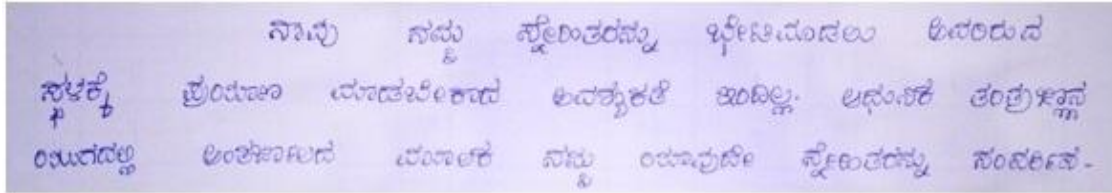 ನಾವು ನಮ್ಮ ಸ್ನೇಹಿತರನ್ನು ಭೇಟಿಮಾಡಲು ಅವರಿರುವ
ಸ್ಥಳಕ್ಕೆ ಪ್ರಯಾಣ ಮಾಡಬೇಕಾದ ಅವಶ್ಯಕತೆ ಇಂದಿಲ್ಲ. ಆಧುನಿಕ ತಂತ್ರಜ್ಞಾನ
ಯುಗದಲ್ಲಿ ಅಂತರ್ಜಾಲದ ಮೂಲಕ ನಮ್ಮ ಯಾವುದೇ ಸ್ನೇಹಿತರನ್ನು ಸಂಪರ್ಕಿಸ-